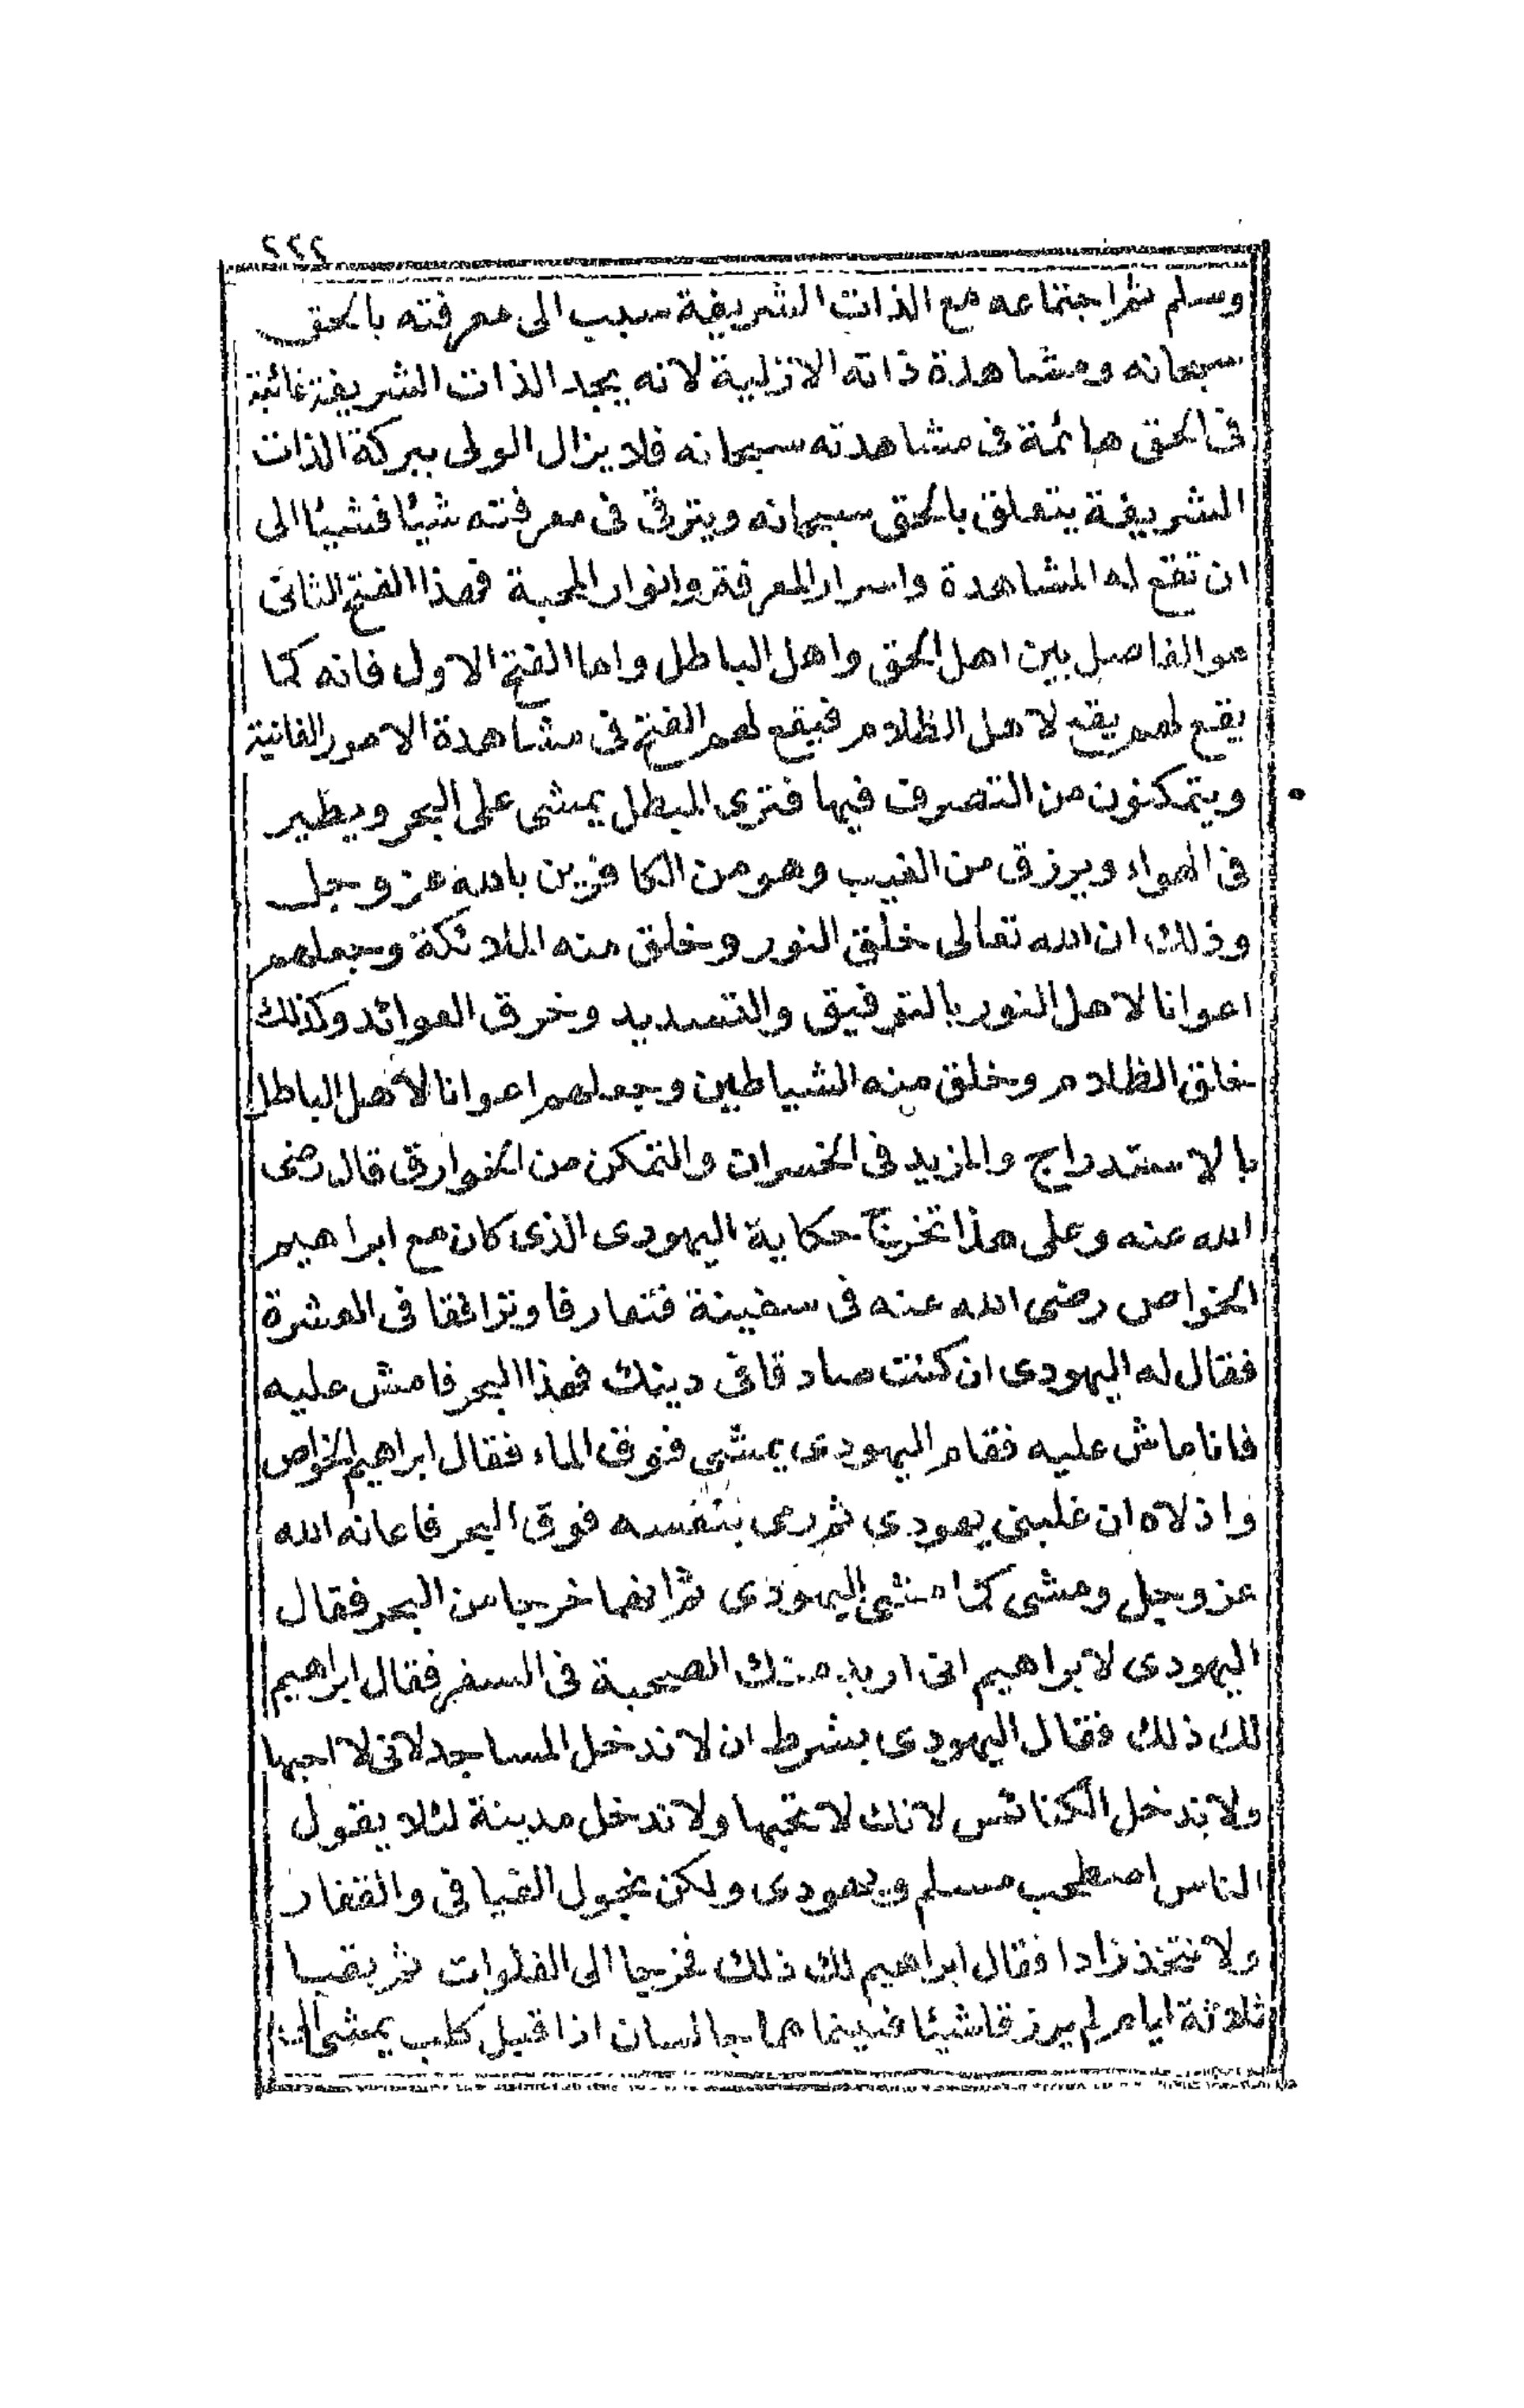 ٢٢٢
وسلم ثم اجتماعه مع الذات الشريفة سبب الى معرفته بالحق
سبحانه ومشاهدة ذاته الازلية لانه يجد الذات الشريفة غائبة
فى الحق هائمة فى مشاهدته سبحانه فلا يزال الولى ببركة الذات
الشريفة يتعلق بالحق سبحانه ويترقى فى معرفته شيئا فشيئا الى
ان تقع له المشاهدة واسرار المعرفة وانوار المحبة فهذا الفتح الثانى
هو الفاصل بين اهل الحق واهل الباطل واما الفتح الاول فانه كما
يقع لهم يقع لاهل الظلام فيقع لهم الفتح فى مشاهدة الامور الفانية
ويتمكنون من التصرف فيها فترى المبطل يمشى على البحر ويطير
فى الهواء ويرزق من الغيب وهو من الكافرين بالله عز وجل
وذلك ان الله تعالى خلق النور وخلق منه الملائكة وجعلهم
اعوانا لاهل النور بالتوفيق والتسديد وخرق العوائد وكذلك
خلق الظلام وخلق منه الشياطين وجعلهم اعوانا لاهل الباطل
بالاستدراج والمزيد فى الخسران والتمكن من الخوارق قال رضى
الله عنه وعلى هذا تخرج حكاية اليهودى الذى كان مع ابراهيم
الخواص رضى الله عنه فى سفينة فتعارفا وترافقا فى العشرة
فقال له اليهودى ان كنت صادقا فى دينك فهذا البحر فامش عليه
فانا ماش عليه فقام اليهودى يمشى فوق الماء فقال ابراهيم الخواص
واذلاه ان غلبنى يهودى ثم رمى بنفسه فوق البحر فاعانه الله
عز وجل ومشى كما مشى اليهودى ثم انهما خرجا من البحر فقال
اليهودى لابراهيم انى اريد منك الصحبة فى السفر فقال ابراهيم
لك ذلك فقال اليهودى بشرط ان لا ندخل المساجد لانى لا احبها
ولا ندخل الكنائس لانك لا تحبها ولا ندخل مدينة لئلا يقول
الناس اصطحب مسلم ويهودى ولكن نجول الفيافى والقفار
ولا نتخذ زادا فقال ابراهيم لك ذلك فخرجا الى الفلوات ثم بقيا
ثلاثة ايام لم يرزقا شيئا فبينما هما جالسان اذا قبل كلب يمشى الى